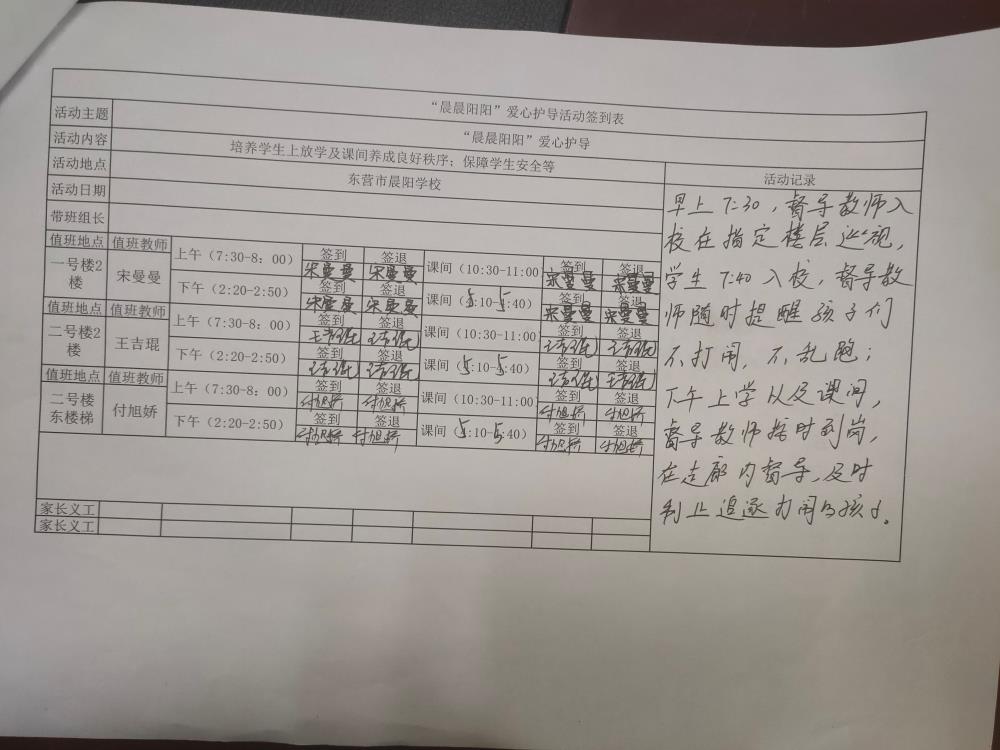 “晨晨阳阳”爱心护导活动签到表
活动主题 “晨晨阳阳”爱心护导
活动内容 培养学生上放学及课间养成良好秩序；保障学生安全等
活动地点 东营市晨阳学校 活动记录
活动日期
带班组长
值班地点 值班教师 上午（7:30-8：00） 签到 签退 课间（10:30-11:00） 签到 签退
一号楼2楼 宋曼曼 宋曼曼 宋曼曼 宋曼曼 宋曼曼
下午（2:20-2:50） 签到 签退 课间（5:10-5:40） 签到 签退
宋曼曼 宋曼曼 宋曼曼 宋曼曼
值班地点 值班教师 上午（7:30-8：00） 签到 签退 课间（10:30-11:00） 签到 签退
二号楼2楼 王吉琨 王吉琨 王吉琨 王吉琨 王吉琨
下午（2:20-2:50） 签到 签退 课间（5:10-5:40） 签到 签退
王吉琨 王吉琨 王吉琨 王吉琨
值班地点 值班教师 上午（7:30-8：00） 签到 签退 课间（10:30-11:00） 签到 签退
二号楼东楼梯 付旭娇 付旭娇 付旭娇 付旭娇 付旭娇
下午（2:20-2:50） 签到 签退 课间（5:10-5:40） 签到 签退
付旭娇 付旭娇 付旭娇 付旭娇
家长义工
家长义工
早上7:30，督导教师入
校在指定楼层巡视，
学生7:40入校，督导教
师随时提醒孩子们
不打闹，不乱跑；
下午上学以及课间，
督导教师按时到岗，
在走廊内督导，及时
制止追逐打闹的孩子。